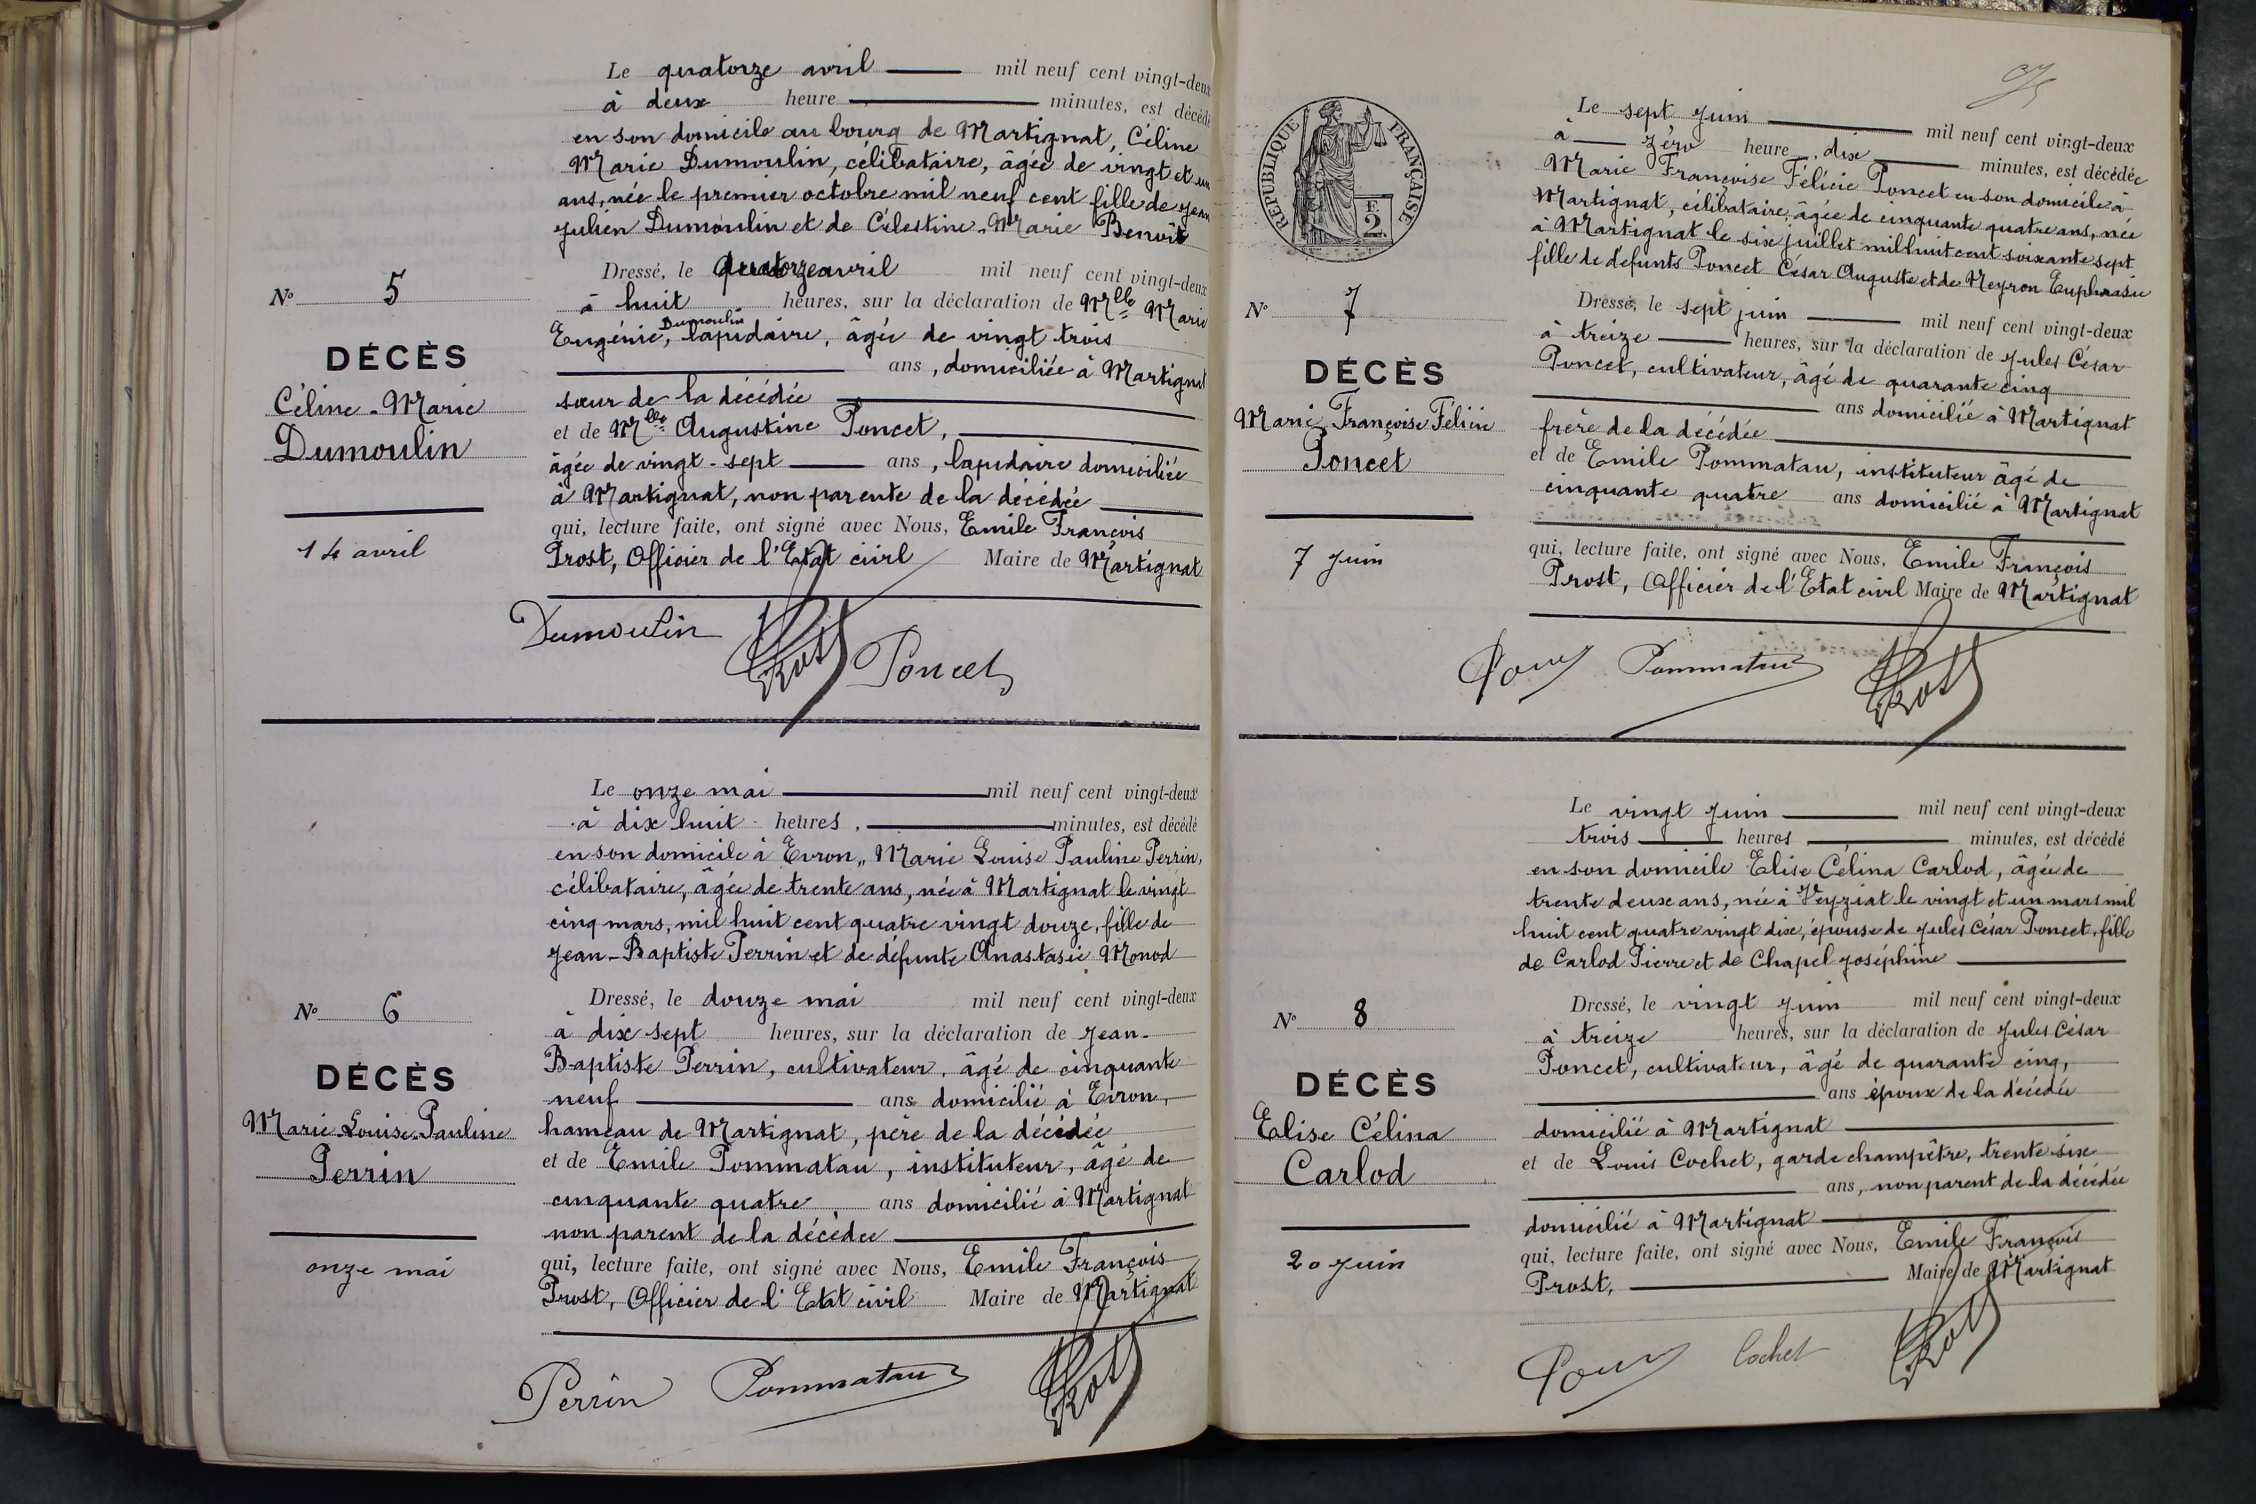 Le quatorze avril mil neuf cent vingt-deux
à deux heure minutes, est décédé
en son domicile au bourg de Martignat, Céline
Marie Dumoulin, célibataire, âgée de vingt et un
ans, née le premier octobre mil neuf cent fille de Jean
Julien Dumoulin et de Célestine-Marie Benoît
Dressé, le quatorze avril mil neuf cent vingt-deux
à huit heures, sur la déclaration de Mlle Marie
Dumoulin
Eugénie, lapidaire, âgée de vingt trois
ans, domiciliée à Martignat
sœur de la décédée
et de Mlle Augustine Poncet,
âgée de vingt-sept ans, lapidaire domiciliée
à Martignat, non parente de la décédée
qui, lecture faite, ont signé avec Nous, Emile François
Prost, Officier de l'Etat civil Maire de Martignat
Dumoulin Prost Poncet
N° 5
DÉCÈS
Céline-Marie
Dumoulin
14 avril
Le onze mai mil neuf cent vingt-deux
à dix huit heures, minutes, est décédé
en son domicile à Evron, Marie Louise Pauline Perrin,
célibataire, âgée de trente ans, née à Martignat le vingt
cinq mars, mil huit cent quatre vingt douze, fille de
Jean-Baptiste Perrin et de défunte Anastasie Monod
Dressé, le douze mai mil neuf cent vingt-deux
à dix sept heures, sur la déclaration de Jean-
Baptiste Perrin, cultivateur, âgé de cinquante
neuf ans domicilié à Evron,
hameau de Martignat, père de la décédée
et de Emile Pommatau, instituteur, âgé de
cinquante quatre ans domicilié à Martignat
non parent de la décédée
qui, lecture faite, ont signé avec Nous, Emile François
Prost, Officier de l'Etat civil Maire de Martignat
Perrin Pommatau Prost
N° 6
DÉCÈS
Marie-Louise-Pauline
Perrin
onze mai
RÉPUBLIQUE FRANÇAISE
F.
2
Le sept Juin mil neuf cent vingt-deux
à zéro heure, dix minutes, est décédée
Marie Françoise Félicie Poncet en son domicile à
Martignat, célibataire, âgée de cinquante quatre ans, née
à Martignat le six juillet mil huit cent soixante sept
fille de défunts Poncet César Auguste et de Neyron Euphrasie
Dressé, le sept juin mil neuf cent vingt-deux
à treize heures, sur la déclaration de Jules César
Poncet, cultivateur, âgé de quarante cinq
ans domicilié à Martignat
frère de la décédée
et de Emile Pommatau, instituteur âgé de
cinquante quatre ans domicilié à Martignat
qui, lecture faite, ont signé avec Nous, Emile François
Prost, Officier de l'Etat civil Maire de Martignat
Pommatau Prost
N° 7
DÉCÈS
Marie Françoise Félicie
Poncet
7 Juin
Le vingt Juin mil neuf cent vingt-deux
trois heures minutes, est décédé
en son domicile Elise Célina Carlod, âgée de
trente deux ans, née à Veyziat le vingt et un mars mil
huit cent quatre vingt dix, épouse de Jules César Poncet, fille
de Carlod Pierre et de Chapel Joséphine
Dressé, le vingt Juin mil neuf cent vingt-deux
à treize heures, sur la déclaration de Jules César
Poncet, cultivateur, âgé de quarante cinq,
ans époux de la décédée
domicilié à Martignat
et de Louis Cochet, garde champêtre, trente six
ans, non parent de la décédée
domicilié à Martignat
qui, lecture faite, ont signé avec Nous, Emile François
Prost, Maire de Martignat
Cochet Prost
N° 8
DÉCÈS
Elise Célina
Carlod
20 Juin